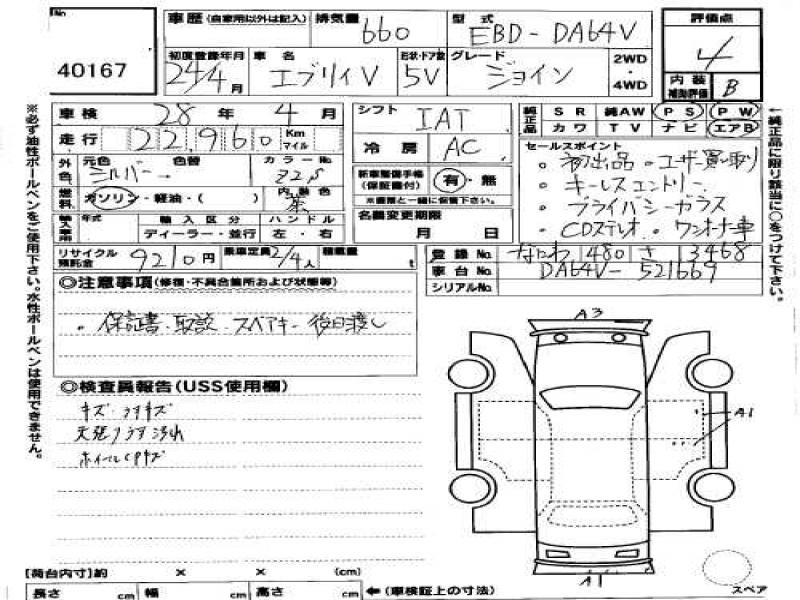 No.
40167
車歴 (自家用以外は記入) 排気量 660 型式 EBD-DA64V 評価点 4
初度登録年月 24/4月 車名 エブリィV 形状・ドア数 5V グレード ジョイン 2WD・4WD 内装補助評価 B
※必ず油性ボールペンをご使用下さい。水性ボールペンは使用できません。
車検 28年 4月 シフト IAT 純正品 SR 純AW PS PW
カワ TV ナビ エアB
走行 22,960 Km マイル 冷房 AC
←純正品に限り該当に○をつけて下さい。
外色 元色 シルバー 色替 カラーNo. Z2S
新車整備手帳(保証書付) 有・無
※車と一緒に保管下さい。
燃料 ガソリン・軽油・( ) 内装色 茶
セールスポイント
・初出品 ・ユーザー買い取り
・キーレスエントリー
・プライバシーガラス
・CDステレオ ・ワンオーナー車
輸入車用 年式 輸入区分 ハンドル
ディーラー・並行 左・右
名義変更期限
月 日
リサイクル預託金 9210円 乗車定員 2/4人 積載量 t
登録No. なにわ 480 さ 13468
車台No. DA64V-521669
シリアルNo.
◎注意事項(修復・不具合箇所および状態等)
・保証書・取説・スペアキー後日渡し
◎検査員報告(USS使用欄)
キズ・うすキズ
天張りうす汚れ
ホイールCPキズ
A3
A1
A1
スペア
【荷台内寸】約 × × (cm)
長さ cm 幅 cm 高さ cm ←(車検証上の寸法)